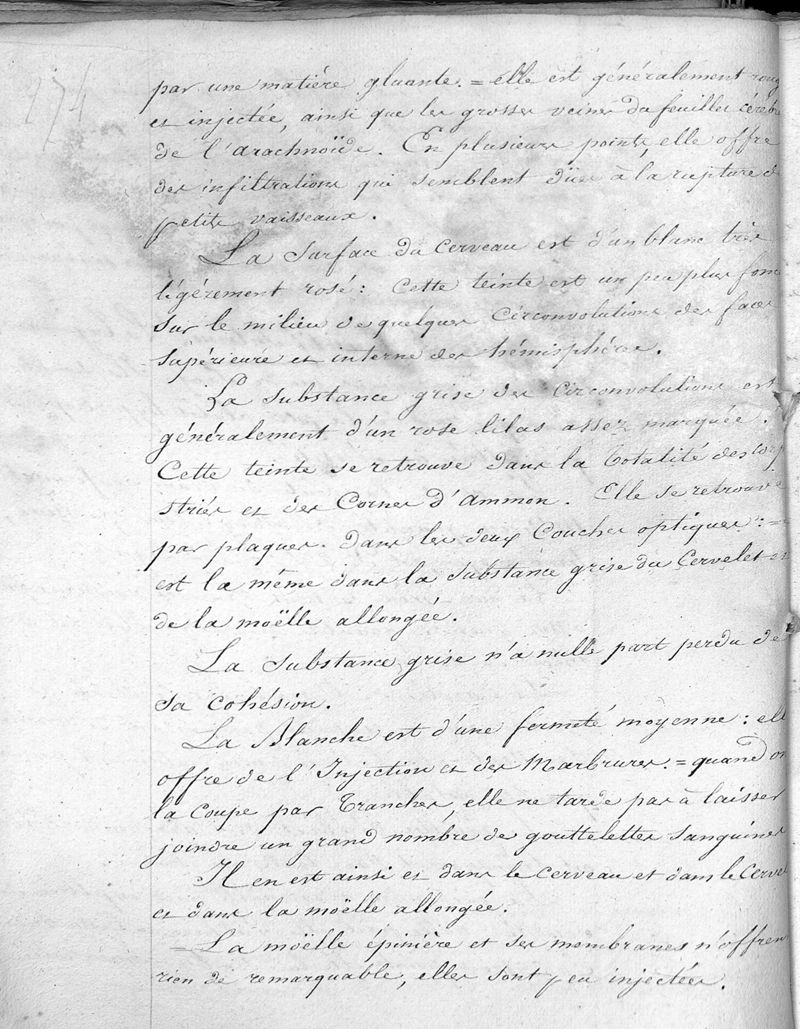 174
par une matière gluante. = elle est généralement roug
et injectée, ainsi que les grosses veines du feuillet céréb
de l'arachnoïde. En plusieurs points, elle offre
des infiltrations qui semblent dües à la rupture de
petits vaisseaux.
La surface du Cerveau est d'un blanc très
légèrement rosé : Cette teinte est un peu plus fon
sur le milieu de quelques Circonvolutions des faces
supérieure et interne des hémisphères.
La substance grise des Circonvolutions est
généralement d'un rose lilas assez marquée.
Cette teinte se retrouve dans la totalité des corp
striés et des Cornes d'ammon. Elle se retrouve
par plaques. dans les deux Couches optiques : =
est la même dans la substance grise du Cervelet
de la moëlle allongée.
La substance grise n'a nulle part perdu de
sa cohésion.
La Blanche est d'une fermeté moyenne : ell
offre de l'Injection et des Marbrures. = quand on
la coupe par Tranches, elle ne tarde pas à laisser
joindre un grand nombre de gouttelettes sanguines
Il en est ainsi et dans le cerveau et dans le Cerve
et dans la moëlle allongée.
= La moëlle épinière et ses membranes n'offren
rien de remarquable, elles sont peu injectées.